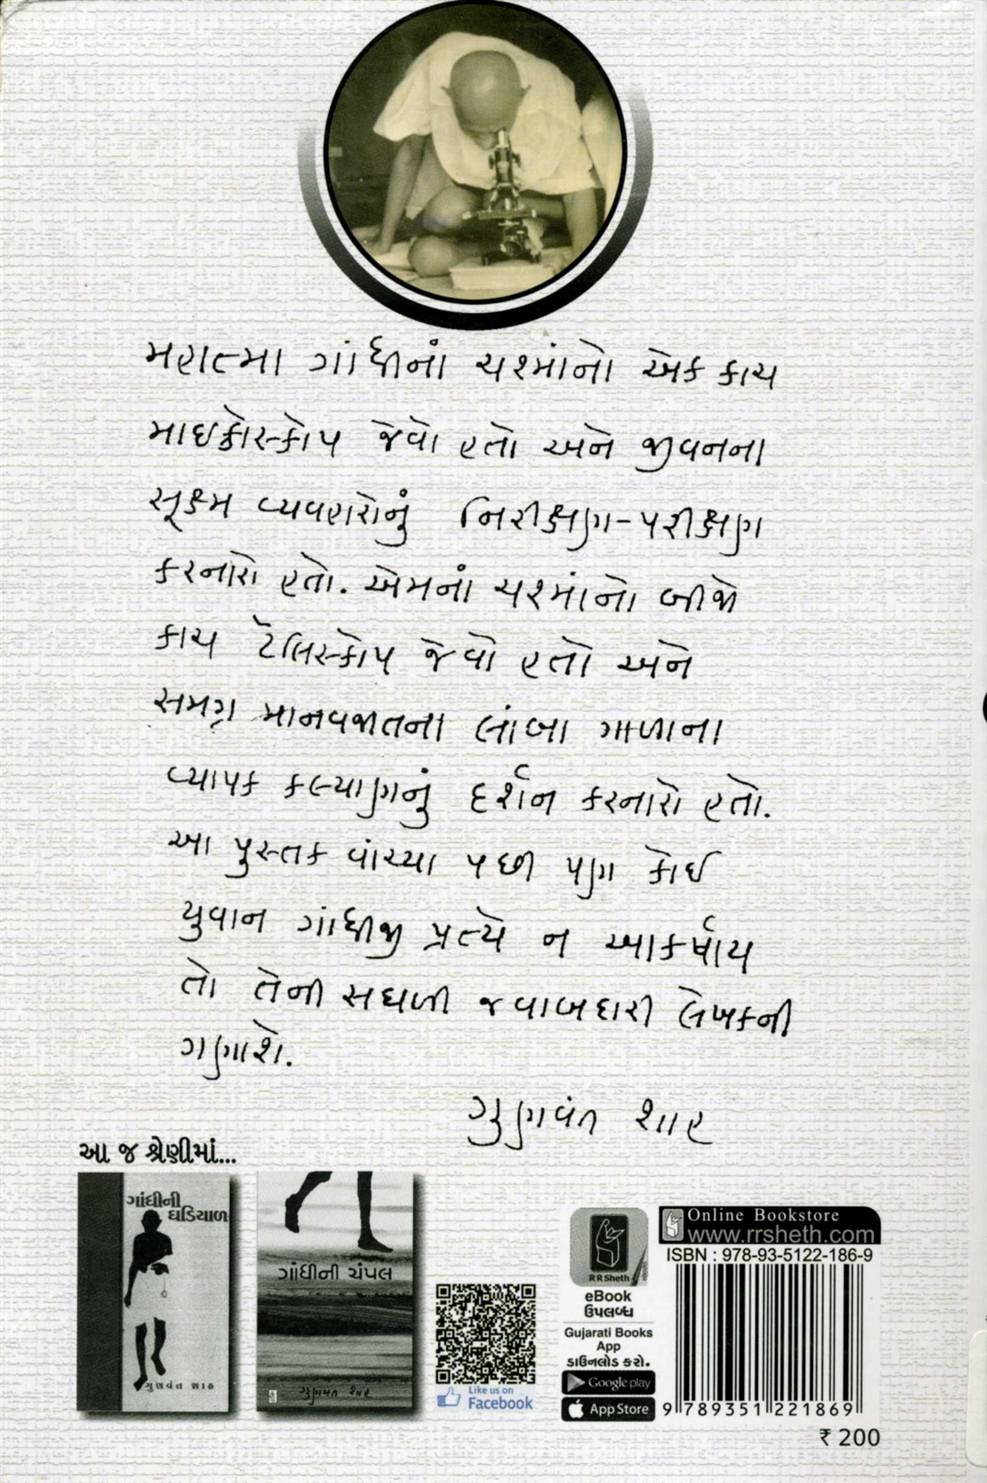 મહાત્મા ગાંધીનાં ચશ્માંનો એક કાચ
માઇક્રોસ્કોપ જેવો હતો અને જીવનના
સૂક્ષ્મ વ્યવહારોનું નિરીક્ષણ-પરીક્ષણ
કરનારો હતો. એમનાં ચશ્માંનો બીજો
કાચ ટેલિસ્કોપ જેવો હતો અને
સમગ્ર માનવજાતના લાંબા ગાળાના
વ્યાપક કલ્યાણનું દર્શન કરનારો હતો.
આ પુસ્તક વાંચ્યા પછી પણ કોઈ
યુવાન ગાંધીજી પ્રત્યે ન આકર્ષાય
તો તેની સઘળી જવાબદારી લેખકની
ગણાશે.
ગુણવંત શાહ
આ જ શ્રેણીમાં...
ગાંધીની
ઘડિયાળ
ગુણવંત શાહ
ગાંધીની ચંપલ
ગુણવંત શાહ
Like us on
Facebook
RR Sheth
eBook
ઉપલબ્ધ
Gujarati Books
App
ડાઉનલોડ કરો.
Google play
App Store
Online Bookstore
www.rrsheth.com
ISBN : 978-93-5122-186-9
9 789351 221869
₹ 200